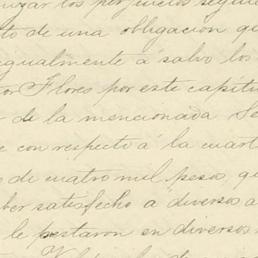 uzar los perjuicios segui
to de una obligacion qu
egualmente á salvo los
or Flores por este capitu
r de la mencionada Se
e con respecto á la cuart
s de cuatro mil pesos, qu
ber satisfecho á diversos a
le prestaron en diversos